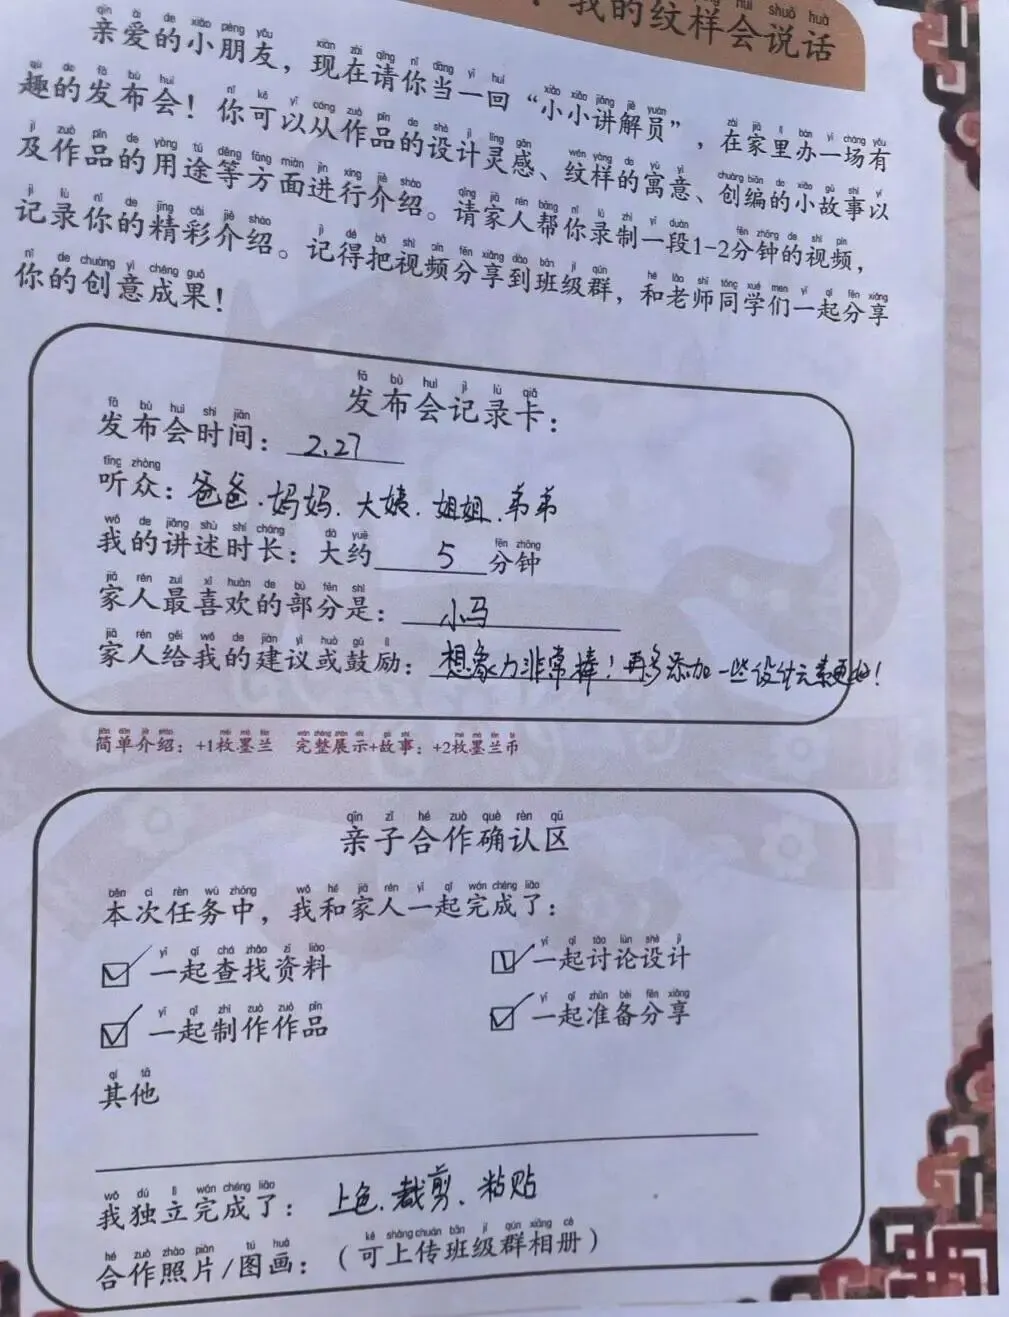 我的纹样会说话
亲爱的小朋友，现在请你当一回“小小讲解员”，在家里办一场有
趣的发布会！你可以从作品的设计灵感、纹样的寓意、创编的小故事以
及作品的用途等方面进行介绍。请家人帮你录制一段1-2分钟的视频，
记录你的精彩介绍。记得把视频分享到班级群，和老师同学们一起分享
你的创意成果！
发布会记录卡：
发布会时间：2.27
听众：爸爸.妈妈.大姨.姐姐.弟弟
我的讲述时长：大约5分钟
家人最喜欢的部分是：小马
家人给我的建议或鼓励：想象力非常棒！再多添加一些设计元素更好！
简单介绍：+1枚墨兰 完整展示+故事：+2枚墨兰币
亲子合作确认区
本次任务中，我和家人一起完成了：
☑一起查找资料 ☑一起讨论设计
☑一起制作作品 ☑一起准备分享
其他
我独立完成了：上色.裁剪、粘贴
合作照片/图画：（可上传班级群相册）